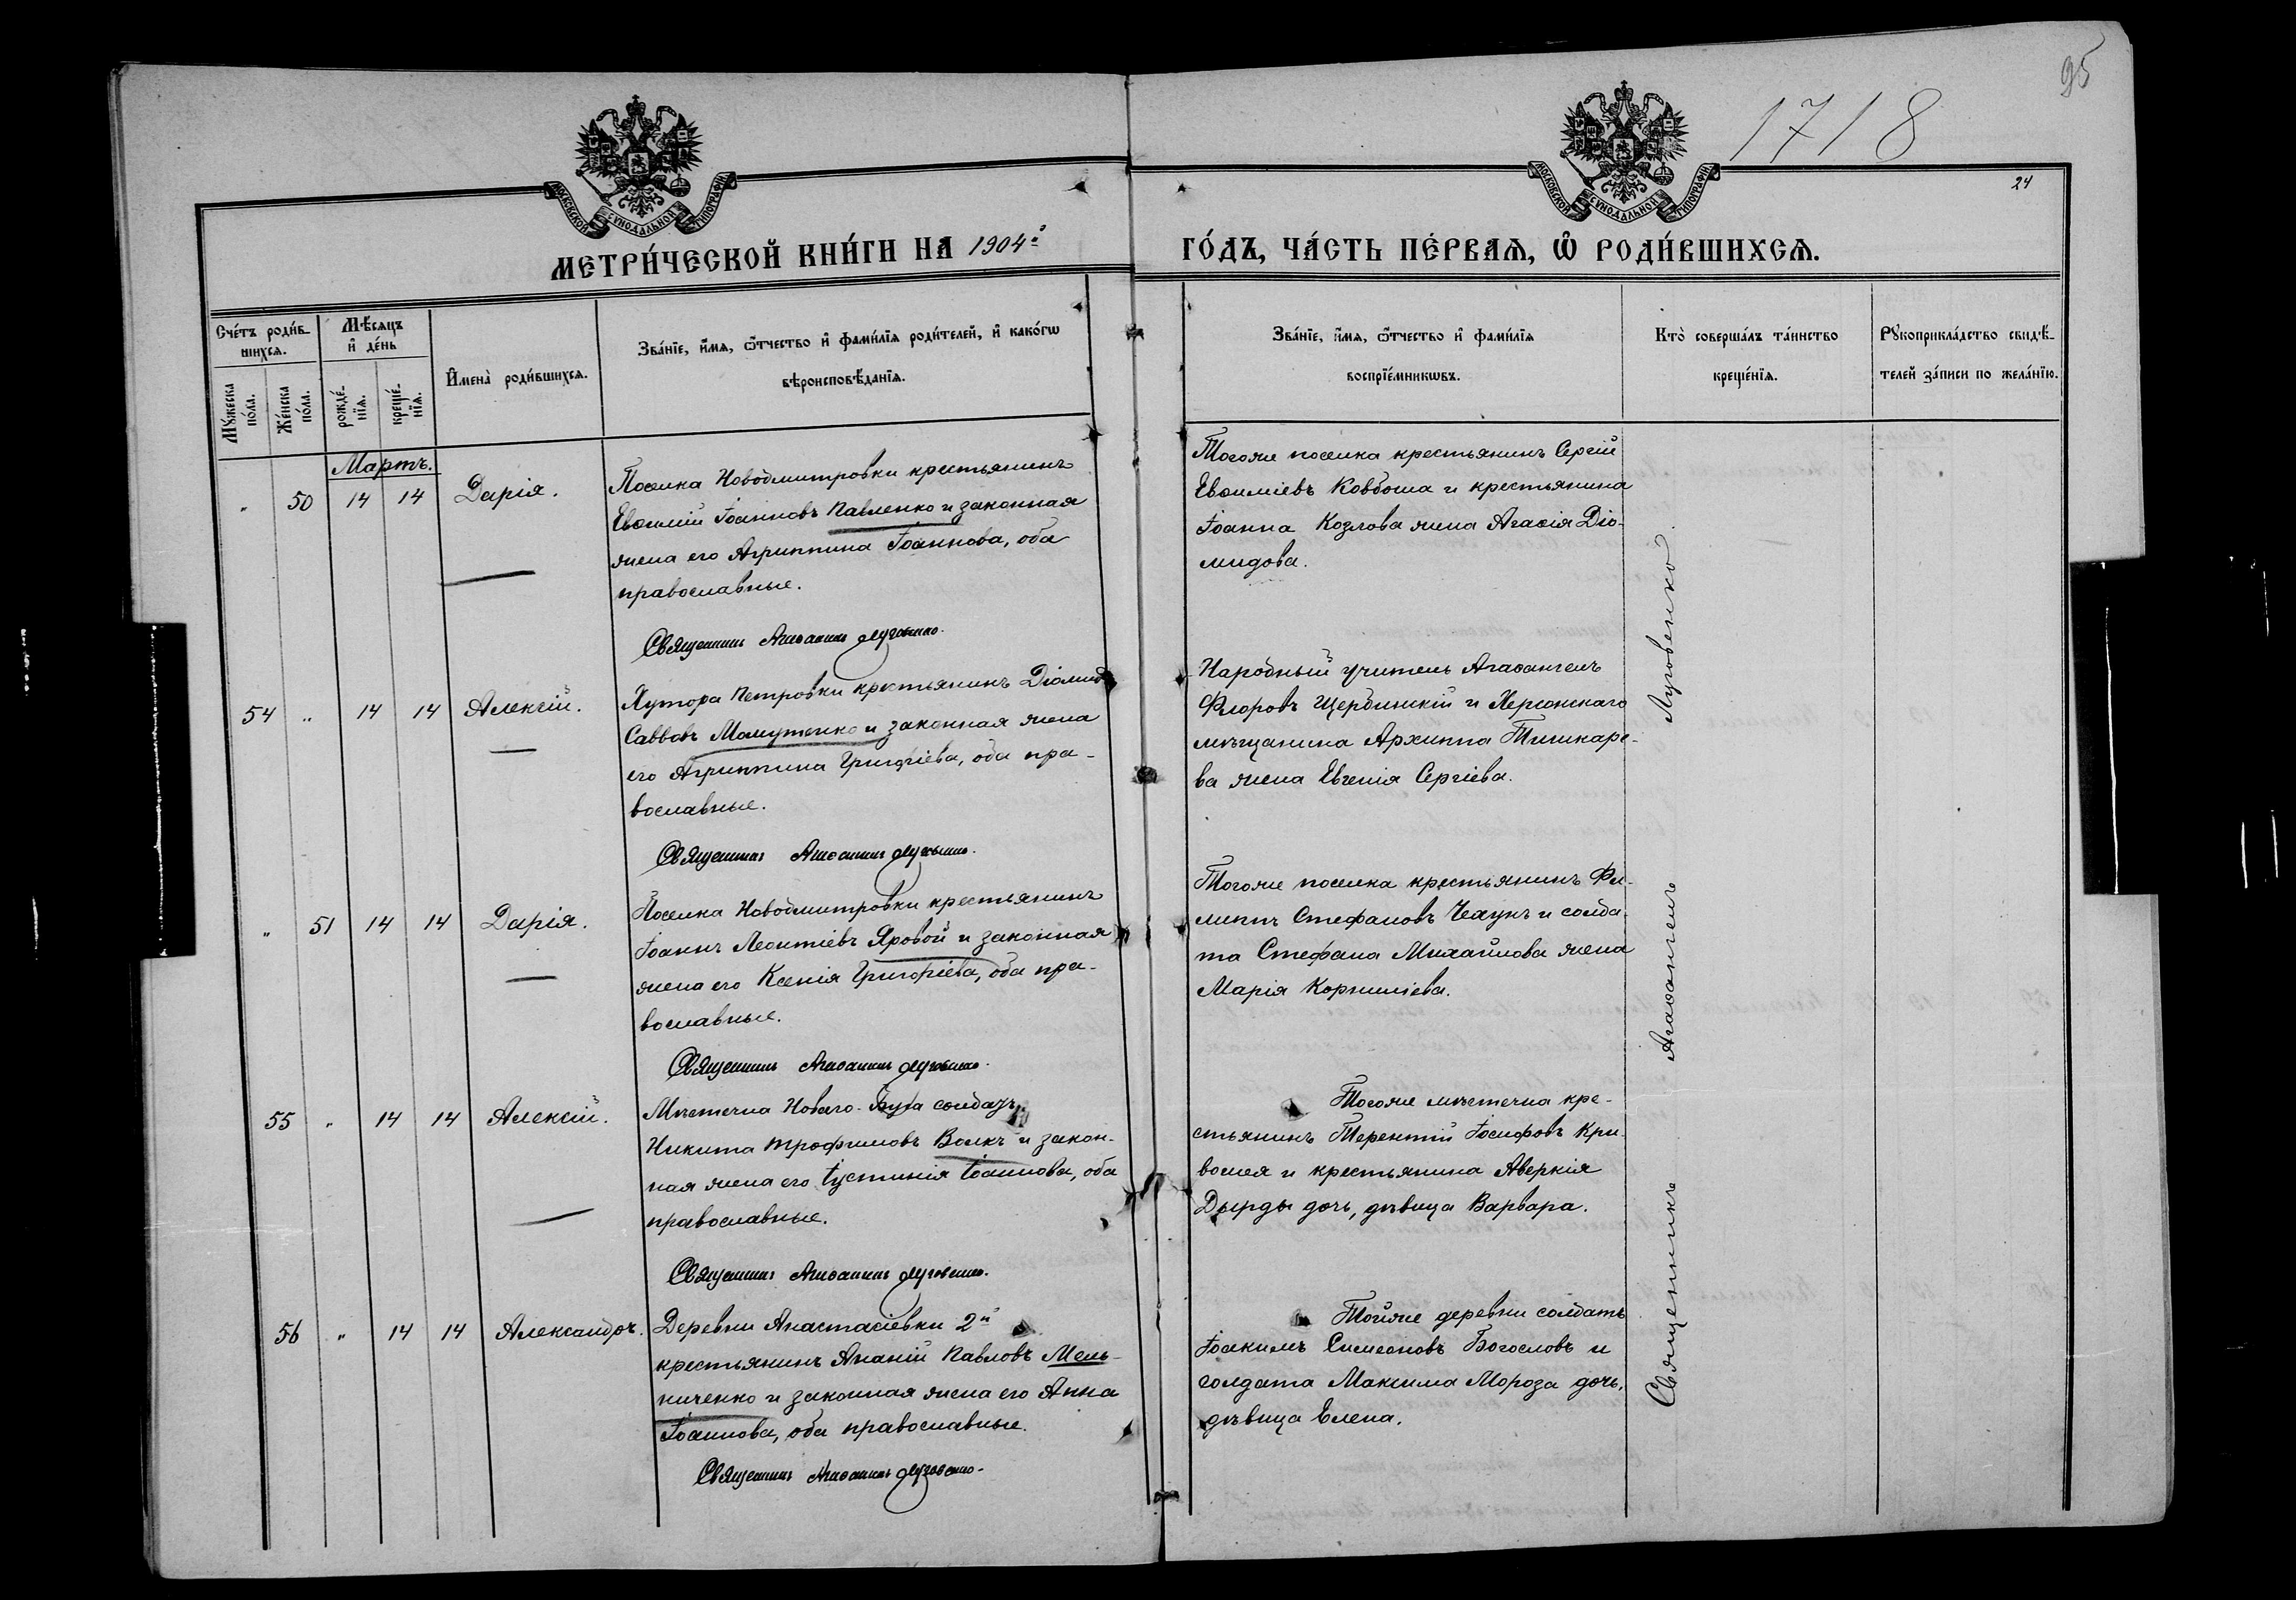 95
1718
24
МОСКОВСКОЙ СѴНОДАЛЬНОЙ ТИПОГРАФІИ
МОСКОВСКОЙ СѴНОДАЛЬНОЙ ТИПОГРАФІИ
МЕТРИ́ЧЕСКОЙ КНИ́ГИ НА 1904й
ГО́ДЪ, ЧА́СТЬ ПЕ́РВАѦ, Ѽ РОДИ́ВШИХСѦ.
Сче́тъ роди́в-
шихсѧ.
Мꙋ́жеска по́ла.
Же́нска по́ла.
Мѣ́сѧцъ и҆ де́нь
рожде́-нїѧ.
креще́-нїѧ.
И҆мена̀ роди́вшихсѧ.
Зва́нїе, и҆́мѧ, ѻ҆́тчество и҆ фами́лїѧ роди́телей, и҆ како́гѡ
вѣроисповѣ́данїѧ.
Зва́нїе, и҆́мѧ, ѻ҆́тчество и҆ фами́лїѧ
воспрїе́мникѡвъ.
Кто̀ соверша́лъ та́инство
креще́нїѧ.
Рꙋкоприкла́дство свидѣ́-
телей за́писи по жела́нїю.
Мартъ.
" 50 14 14 Дарія.
Поселка Новодмитровки крестьянинъ
Евѳимій Іоанновъ Павленко и законная
жена его Агриппина Іоаннова, оба
православные.
Священникъ Агаѳангелъ Луговенко.
Тогоже поселка крестьянинъ Сергій
Евѳиміевъ Ковбоша и крестьянина
Іоанна Козлова жена Агаѳія Діо-
мидова.
54 " 14 14 Алексій.
Хутора Петровки крестьянинъ Діомидъ
Саввовъ Момутенко и законная жена
его Агриппина Григоріева, оба пра-
вославные.
Священникъ Агаѳангелъ Луговенко.
Народный учитель Агаѳангелъ
Флоровъ Щербинскій и Херсонскаго
мѣщанина Архиппа Тишкаре-
ва жена Евгенія Сергіева.
" 51 14 14 Дарія.
Поселка Новодмитровки крестьянинъ
Іоаннъ Леонтіевъ Яровой и законная
жена его Ксенія Григоріева, оба пра-
вославные.
Священникъ Агаѳангелъ Луговенко.
Тогоже поселка крестьянинъ Фи-
липпъ Стефановъ Чехунъ и солда-
та Стефана Михайлова жена
Марія Корниліева.
55 " 14 14 Алексій.
Мѣстечка Новаго-Буга солдатъ
Никита Трофимовъ Волкъ и закон-
ная жена его Іустинія Іоаннова, оба
православные.
Священникъ Агаѳангелъ Луговенко.
Тогоже мѣстечка кре-
стьянинъ Терентій Іосифовъ Кри-
вошея и крестьянина Аверкія
Дырды дочь, дѣвица Варвара.
56 " 14 14 Александръ.
Деревни Анастасіевки 2й
крестьянинъ Ананій Павловъ Мель-
ниченко и законная жена его Анна
Іоаннова, оба православные.
Священникъ Агаѳангелъ Луговенко.
Тойже деревни солдатъ
Іоакимъ Симеоновъ Богословъ и
солдата Максима Мороза дочь,
дѣвица Елена.
Священникъ Агаѳангелъ Луговенко.